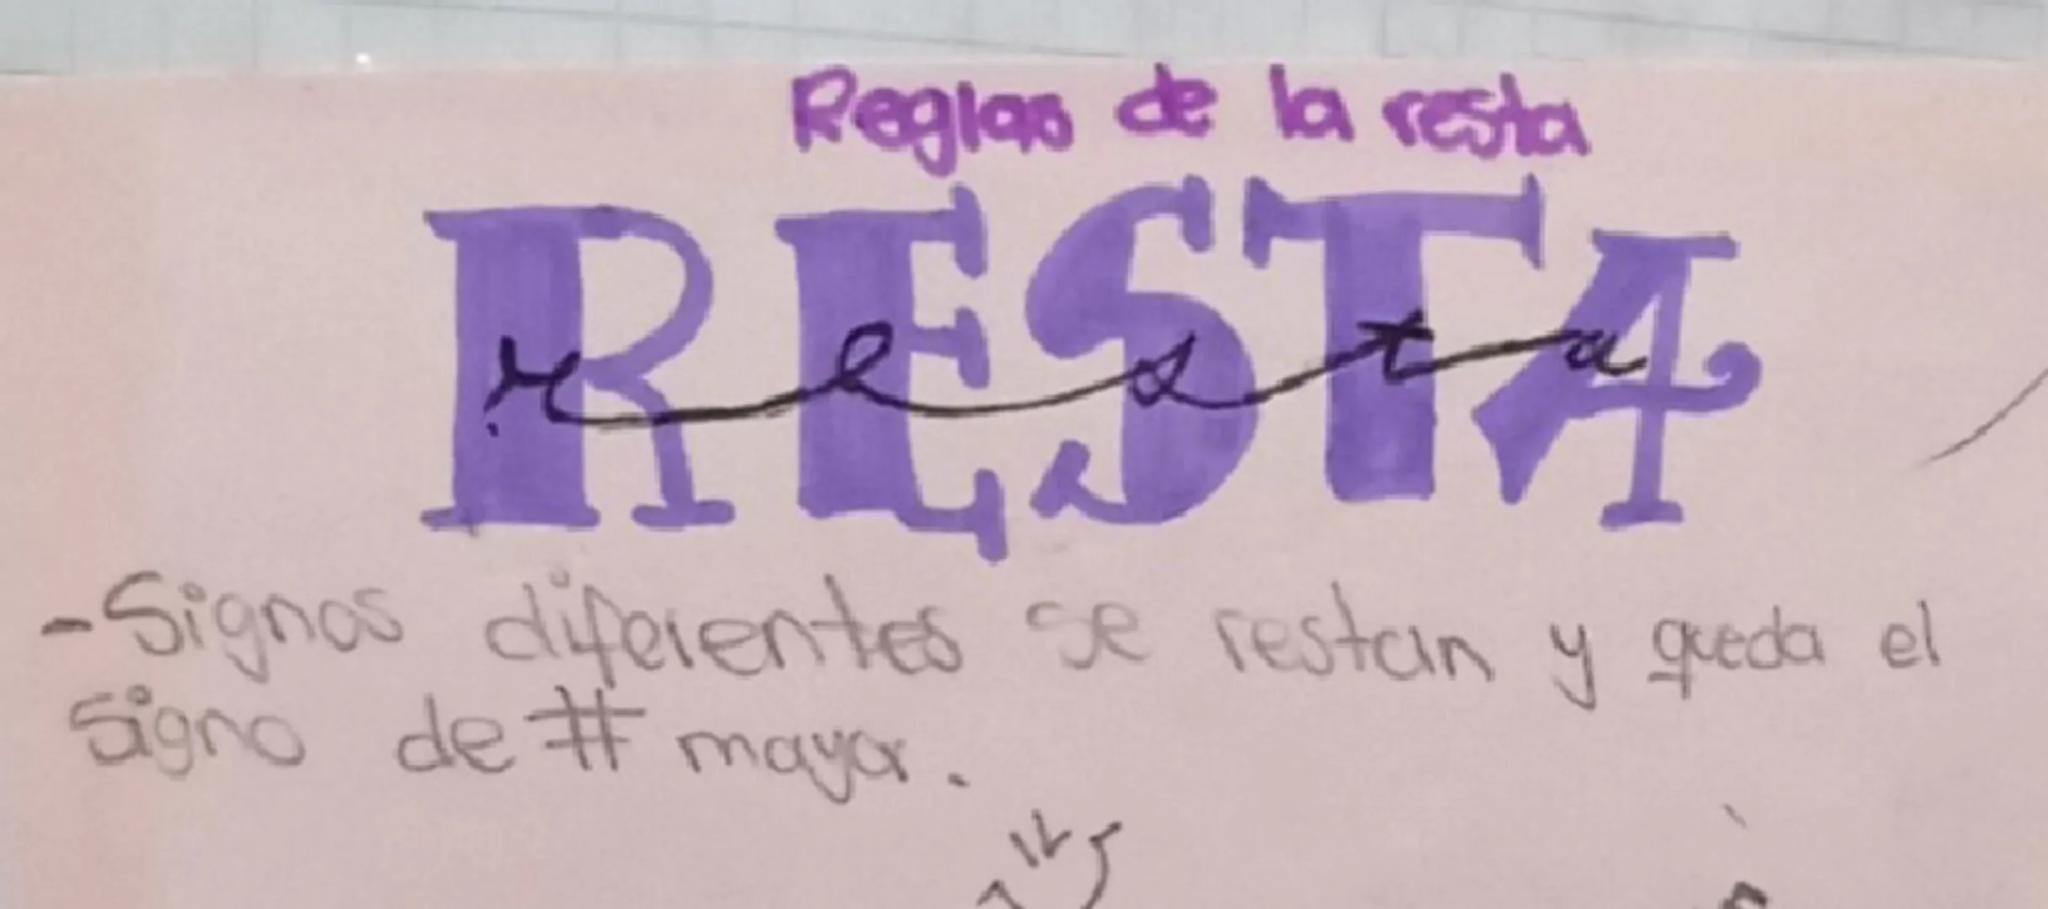 Reglas de la resta
RESTA
resta
-Signos diferentes se restan y queda el
signo de # mayor.